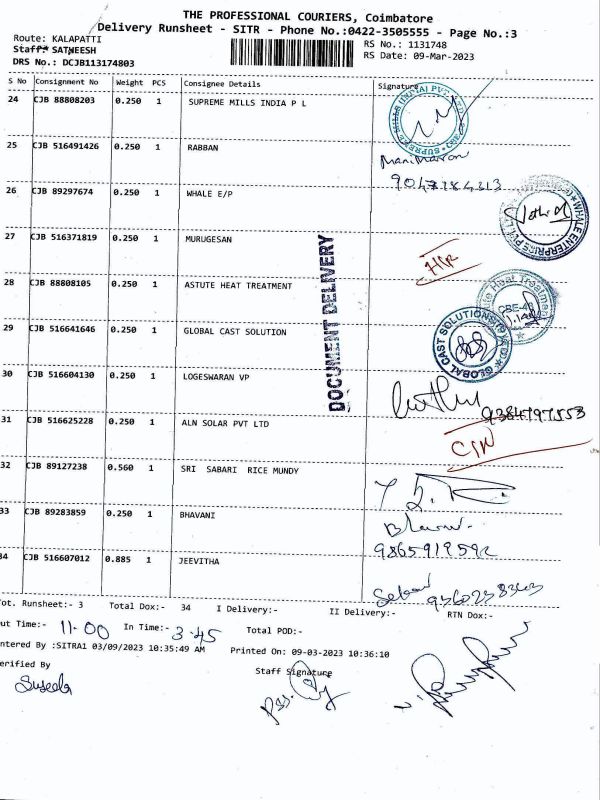 THE PROFESSIONAL COURIERS, Coimbatore
Delivery Runsheet - SITR - Phone No.:0422-3505555 - Page No.:3
Route: KALAPATTI
RS No.: 1131748
Staff: SATHEESH
RS Date: 09-Mar-2023
DRS No.: DCJB113174803
S No Consignment No Weight PCS Consignee Details Signature
24 CJB 88808203 0.250 1 SUPREME MILLS INDIA P L
25 CJB 516491426 0.250 1 RABBAN
Manimaran
9047184313
26 CJB 89297674 0.250 1 WHALE E/P
WHALE ENTERPRISES PVT LTD
27 CJB 516371819 0.250 1 MURUGESAN
DOCUMENT DELIVERY
28 CJB 88808105 0.250 1 ASTUTE HEAT TREATMENT
Heat Treatment
29 CJB 516641646 0.250 1 GLOBAL CAST SOLUTION
GLOBAL CAST SOLUTION
30 CJB 516604130 0.250 1 LOGESWARAN VP
9384797553
31 CJB 516625228 0.250 1 ALN SOLAR PVT LTD
32 CJB 89127238 0.560 1 SRI SABARI RICE MUNDY
33 CJB 89283859 0.250 1 BHAVANI
9865919592
34 CJB 516607012 0.885 1 JEEVITHA
ot. Runsheet:- 3 Total Dox:- 34 I Delivery:- II Delivery:- RTN Dox:-
ut Time:- 11-00 In Time:- 3-45 Total POD:-
ntered By :SITRA1 03/09/2023 10:35:49 AM Printed On: 09-03-2023 10:36:10
erified By Staff Signature
Suseela